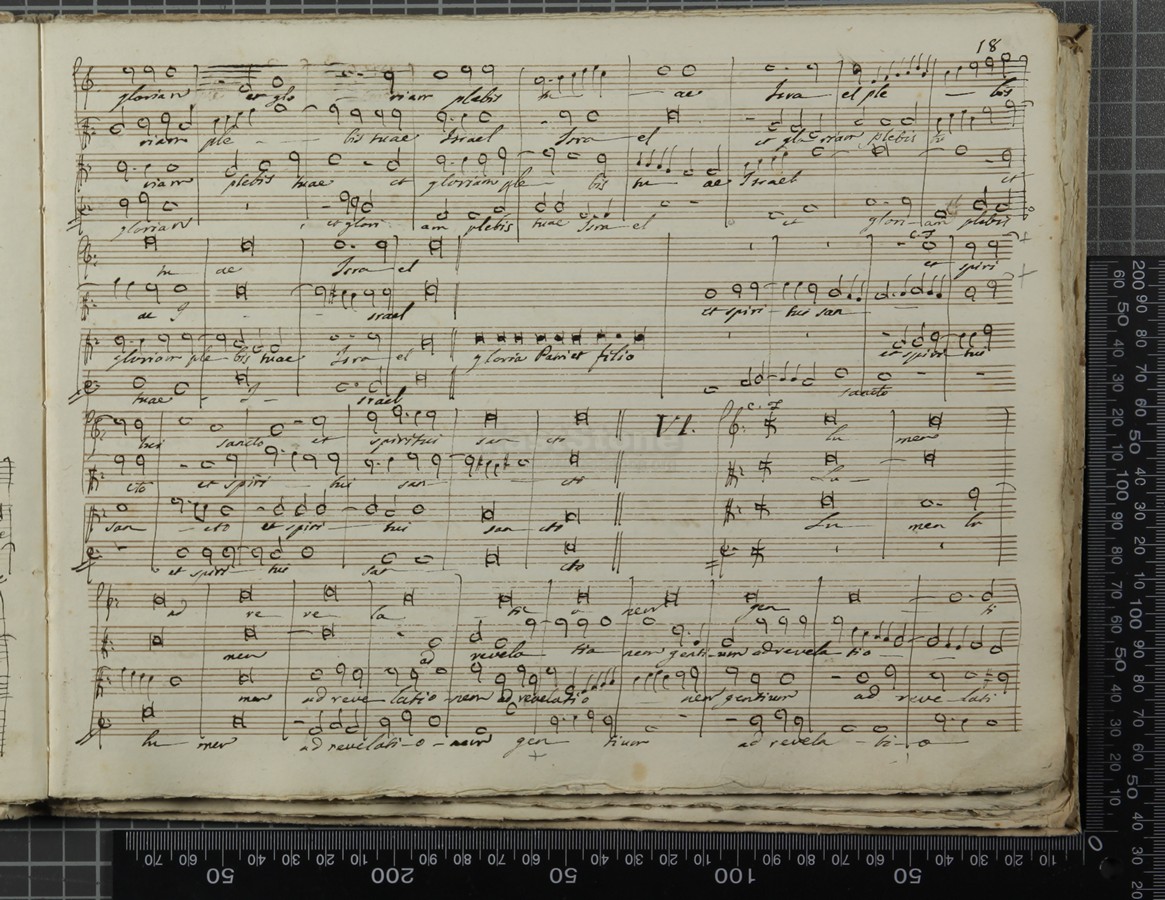 18
gloriam et glo riam plebis tu ae Isra el ple bis
riam ple bis tuae Israel Isra el et gloriam plebis tu
riam plebis tuae et gloriam ple bis tu ae Israel et
gloriam et glori am plebis tuae Isra el et glori am plebis
c. f
tu ae Isra el et spiri
ae I srael et spiri tui san
gloriam ple bis tuae Isra el gloria Patri et filio et spiri tui
tuae I srael sancto
c. f
tui sancto et spiritui san cto VI. Lu men
cto et spiri tui san cto Lu
san cto et spiri tui san cto Lu men lu
et spiri tui san cto
ad re ve la ti o nem gen ti
men ad revela tio nem gentium ad revela tio
men ad reve latio nem ad revelatio nem gentium ad reve lati
lu men ad revelati o nem gen tium ad revela ti o